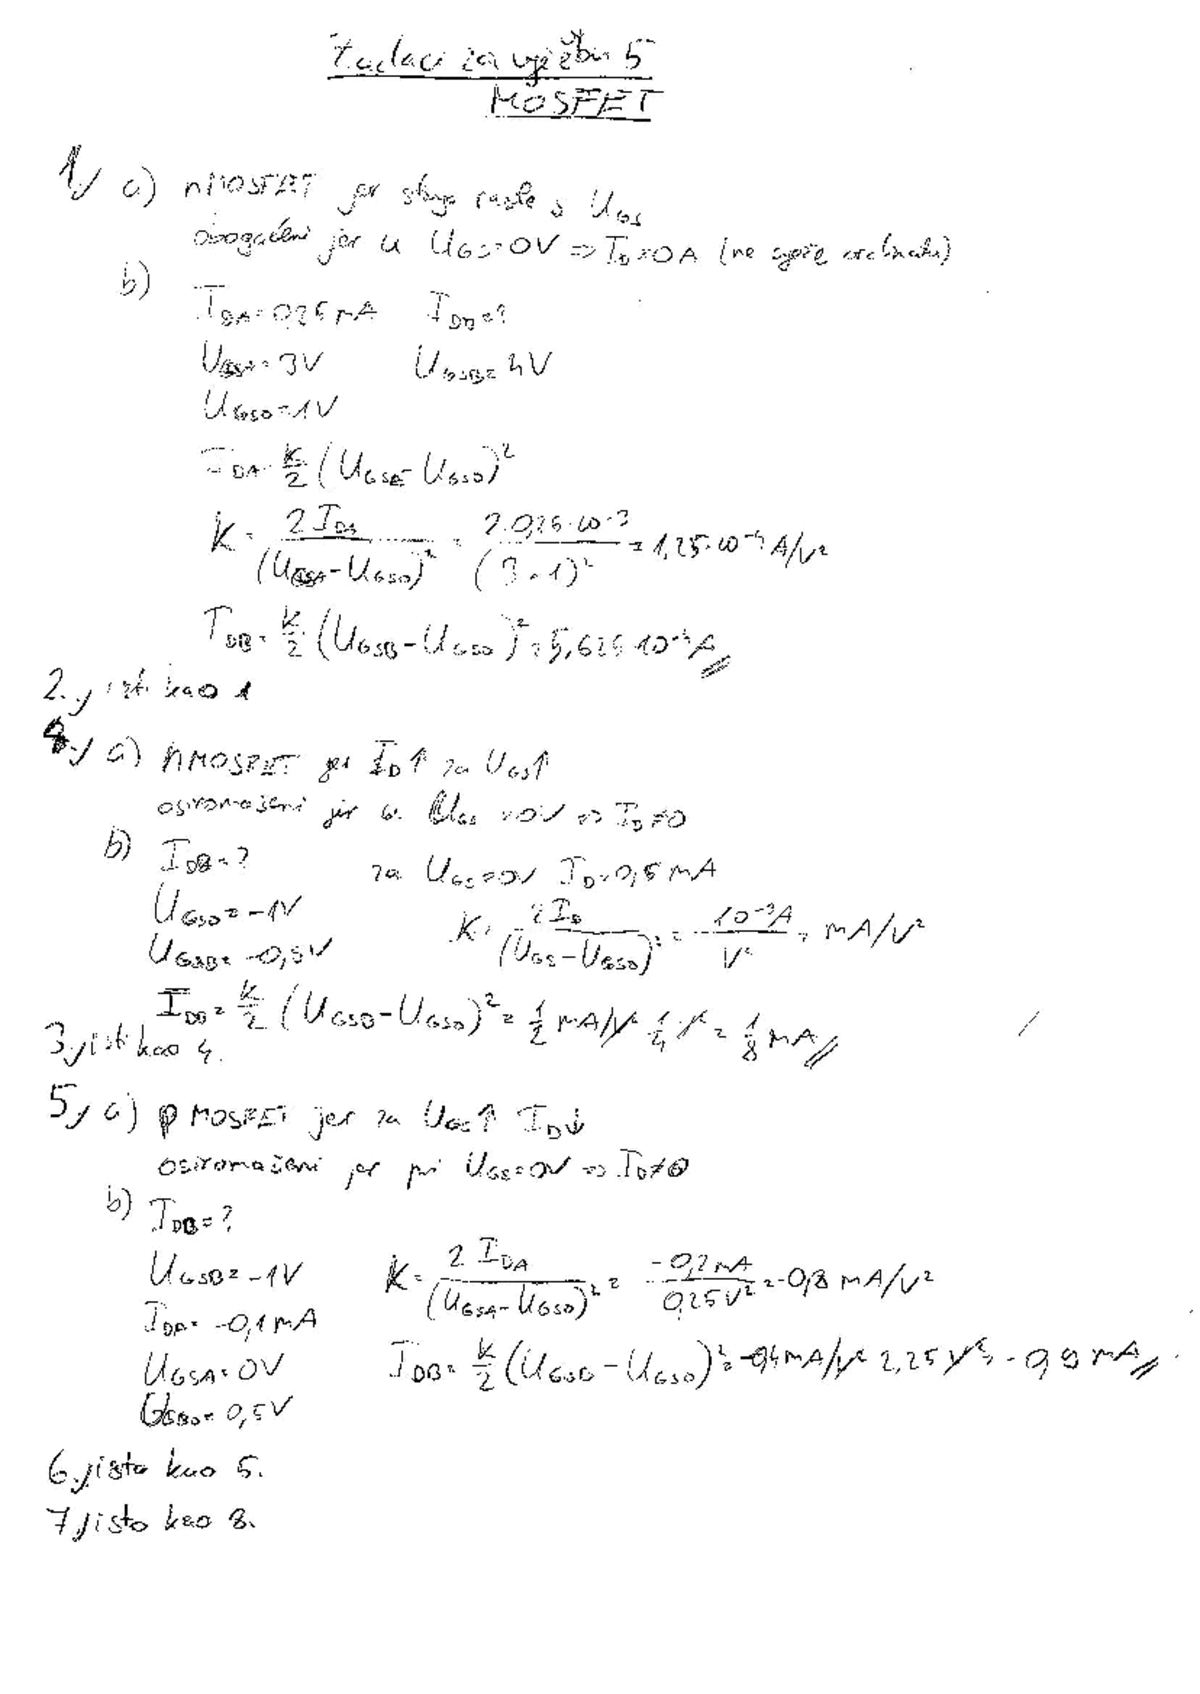 Zadaci za vježbu 5
MOSFET
1, a) nMOSFET jer struja raste s U_GS
obogaćeni jer u U_GS=0V ⇒ I_D=0A (ne siječe ordinatu)
b)
I_DA=0,25mA I_DB=?
U_GSA=3V U_GSB=4V
U_GS0=1V
I_DA=K/2(U_GSA-U_GS0)²
K=2I_DA/(U_GSA-U_GS0)²=2·0,25·10⁻³/(3-1)²=1,25·10⁻⁴A/V²
I_DB=K/2(U_GSB-U_GS0)²=5,625·10⁻⁴A
2., isti kao 1
4., a) nMOSFET jer I_D↑ za U_GS↑
osiromašeni jer u U_GS=0V ⇒ I_D≠0
b) I_DB=? za U_GS=0V I_D=0,5mA
U_GS0=-1V K=2I_D/(U_GS-U_GS0)²=10⁻³A/V²=mA/V²
U_GSB=-0,5V
I_DB=K/2(U_GSB-U_GS0)²=1/2 mA/V² 1/4 V²=1/8 mA
3., isti kao 4.
5, a) pMOSFET jer za U_GS↑ I_D↓
osiromašeni jer pri U_GS=0V ⇒ I_D≠0
b) I_DB=?
U_GSB=-1V K=2I_DA/(U_GSA-U_GS0)²=-0,2mA/0,25V²=-0,8mA/V²
I_DA=-0,1mA
U_GSA=0V I_DB=K/2(U_GSB-U_GS0)²=-0,4mA/V² 2,25V²=-0,9mA
U_GS0=0,5V
6., isto kao 5.
7, isto kao 8.